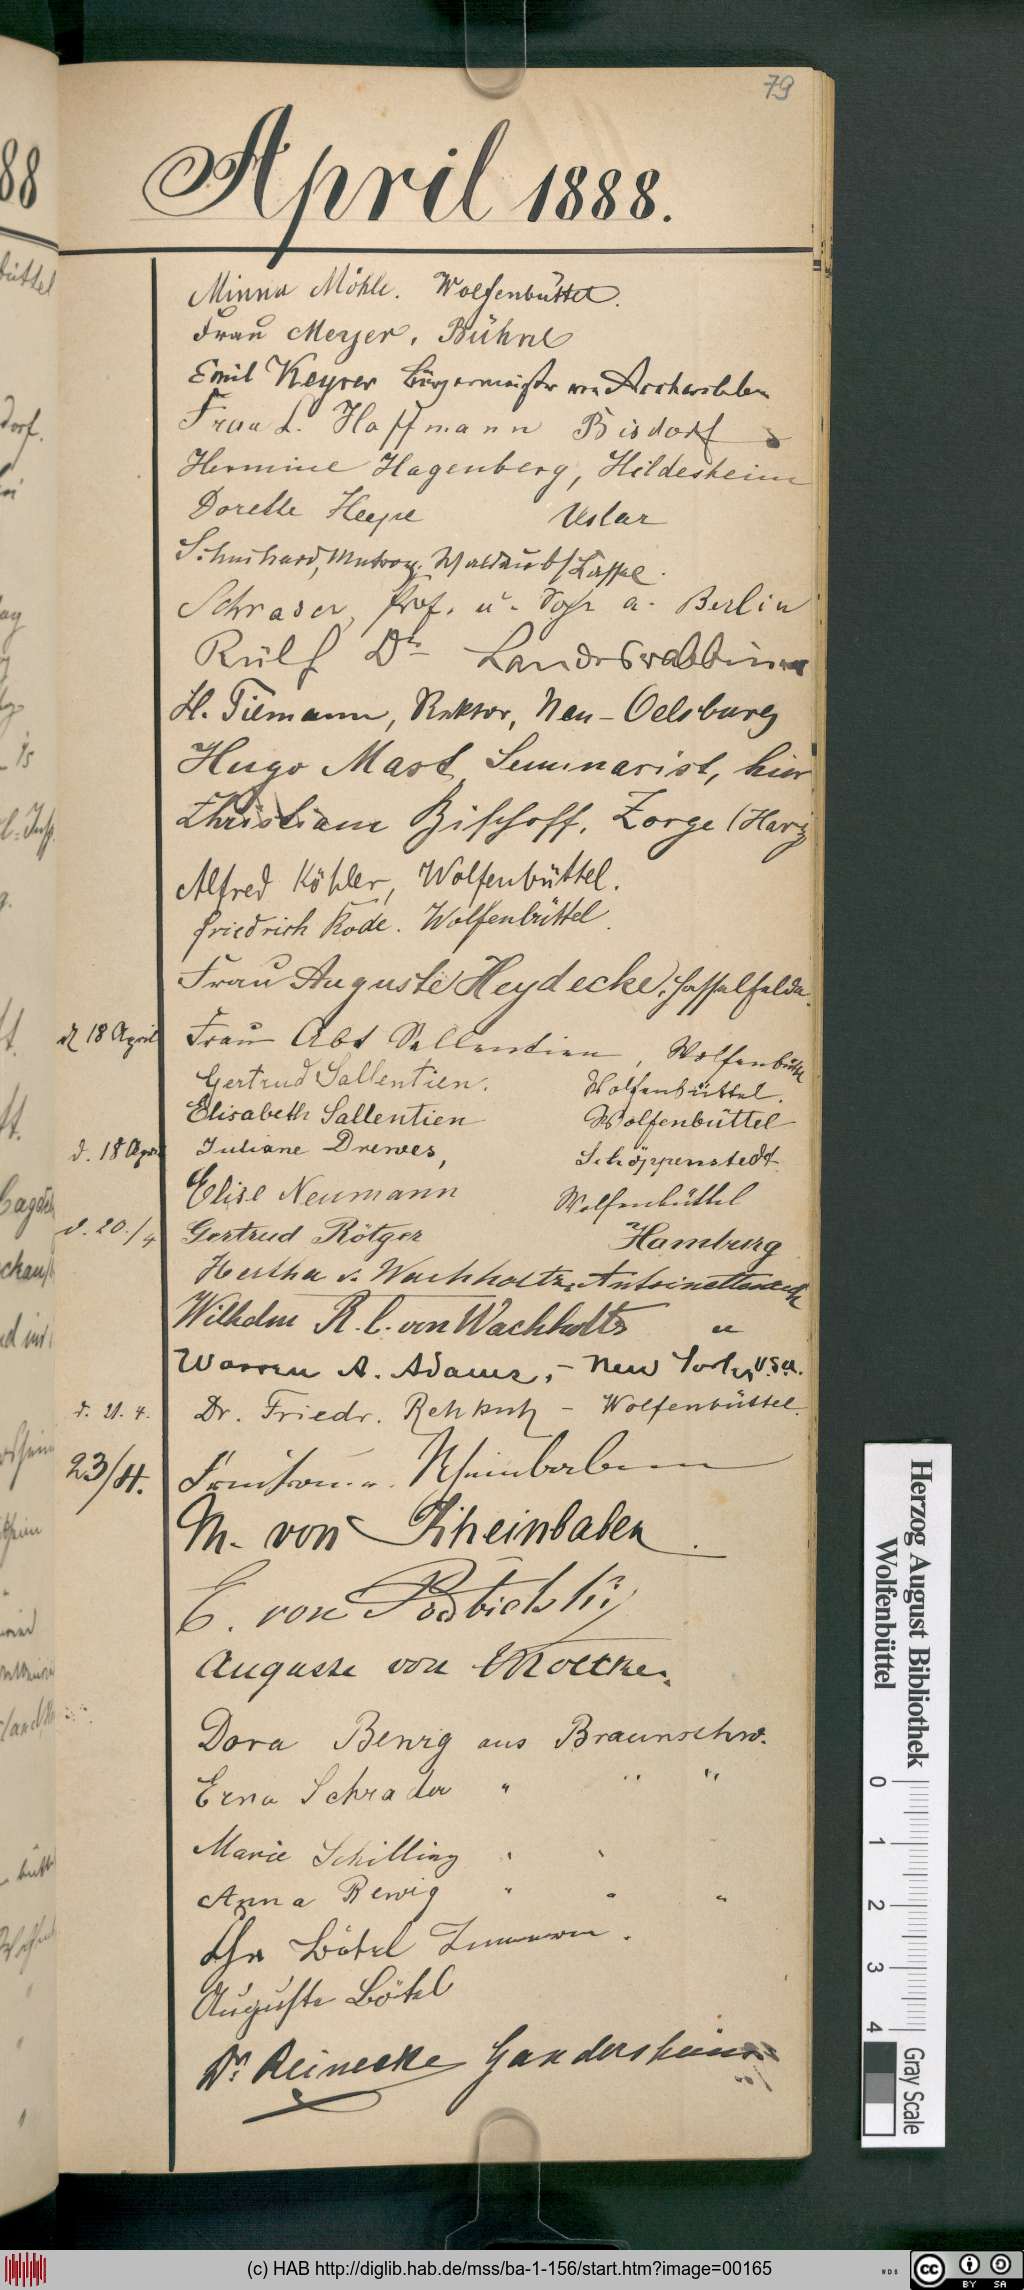 79
April 1888.
Minna Möhle. Wolfenbüttel.
Frau Meyer. Bühne
Emil Keyser Bürgermeister von Aschersleben
Frau L. Hoffmann Bisdorf
Hermine Hagenberg, Hildesheim
Dorette Heepe Uslar
Cassel.
Schrader, Prof. a. Berlin
Rülf Dr Landesrabbiner
H. Tiemann, Rektor, Neu-Oelsburg
Hugo Mast, Seminarist, hier
Christiane Bischoff, Zorge (Harz
Alfred Köhler, Wolfenbüttel.
Friedrich Rode. Wolfenbüttel.
Frau Auguste Heydecke, Hasselfelde.
d 18 April Frau Abt Sallentien, Wolfenbüttel
Gertrud Sallentien. Wolfenbüttel.
Elisabeth Sallentien Wolfenbüttel
d. 18 April Juliane Drewes, Schöppenstedt
Elise Neumann Wolfenbüttel
d. 20./4 Gertrud Rötger Hamburg
Hertha v. Wachholtz, Antoinettenruh
Wilhelm R. C. von Wachholtz "
Warren A. Adams, - New York, U.S.A.
d. 21. 4. Dr. Friedr. Rehkuh - Wolfenbüttel.
23/4. Rheinbaben
M. von Rheinbaben.
E. von Podbielski
Auguste von Moltke.
Dora Bewig aus Braunschw.
Erna Schrader " " "
Marie Schilling " "
Anna Bewig " " "
Chr Bötel
Auguste Bötel
Dr. Reinecke Gandersheim
Herzog August Bibliothek
Wolfenbüttel
0 1 2 3 4
Gray Scale
(c) HAB http://diglib.hab.de/mss/ba-1-156/start.htm?image=00165
cc BY SA